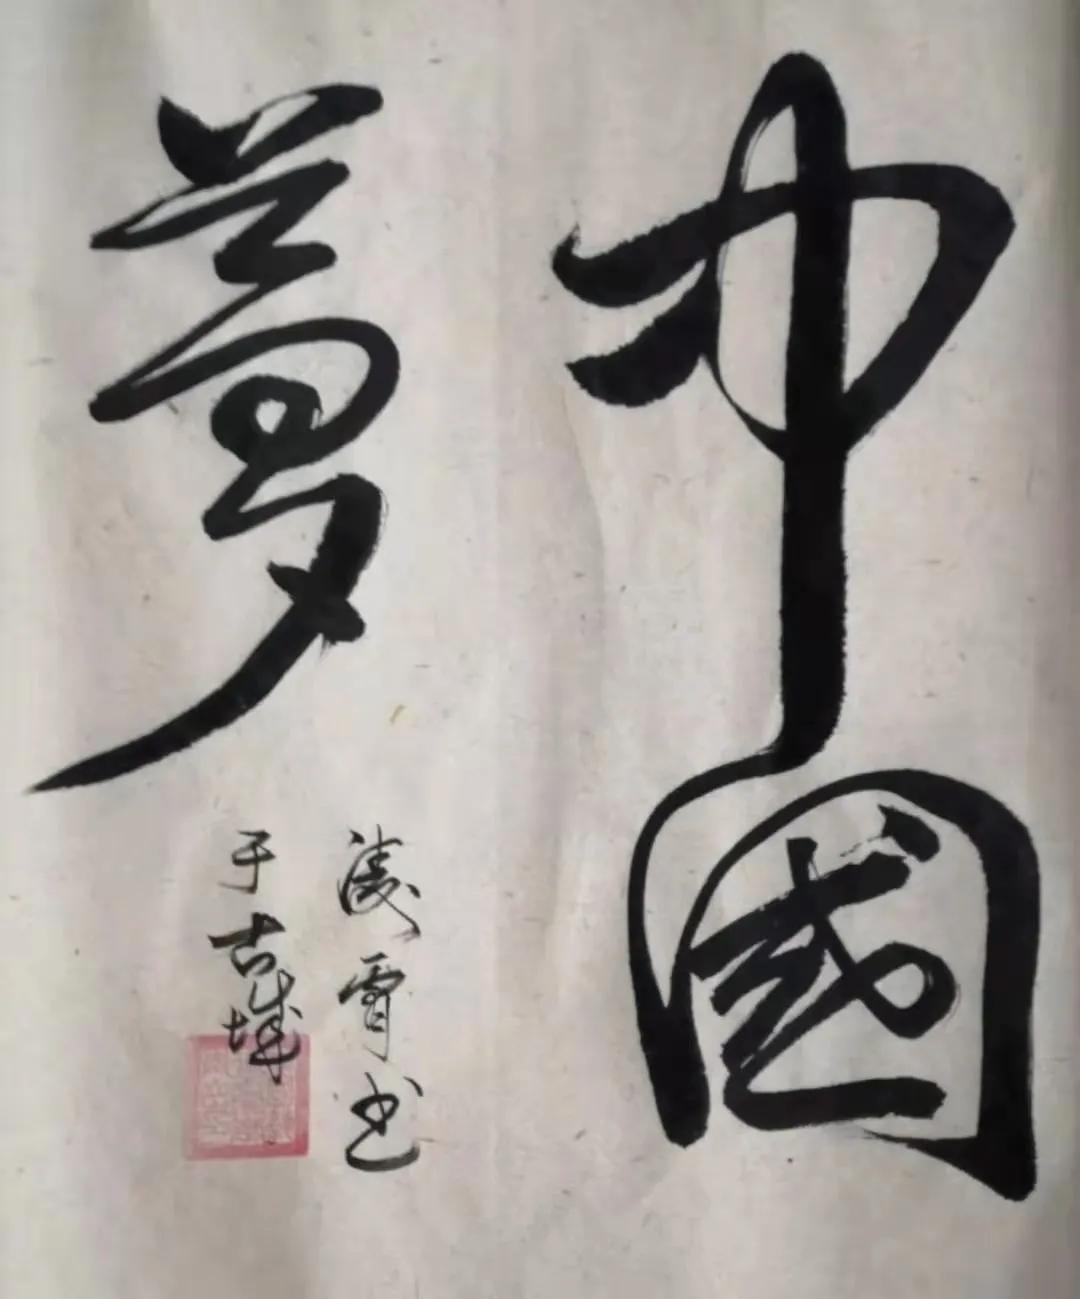 中國
夢
霄书
于古城